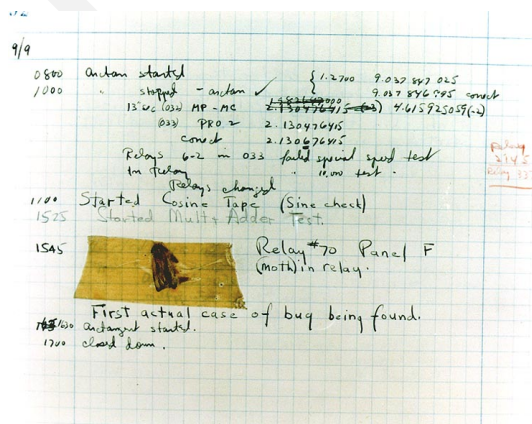 9/9
0800 Antan started { 1.2700 9.037 847 025
1000 " stopped - antan ✓ 9.037 846 995 conect
13"uc (032) MP-MC 2.130476415 4.615925059(-2)
(033) PRO 2 2.130476415
conect 2.130676415
Relays 6-2 in 033 failed special speed test
in Relay " 11.000 test.
Relays changed
Relay
2145
Relay 33
1100 Started Cosine Tape (Sine check)
1525 Started Mult+Adder Test.
1545 Relay #70 Panel F
(moth) in relay.
First actual case of bug being found.
1630 antangent started.
1700 closed down.